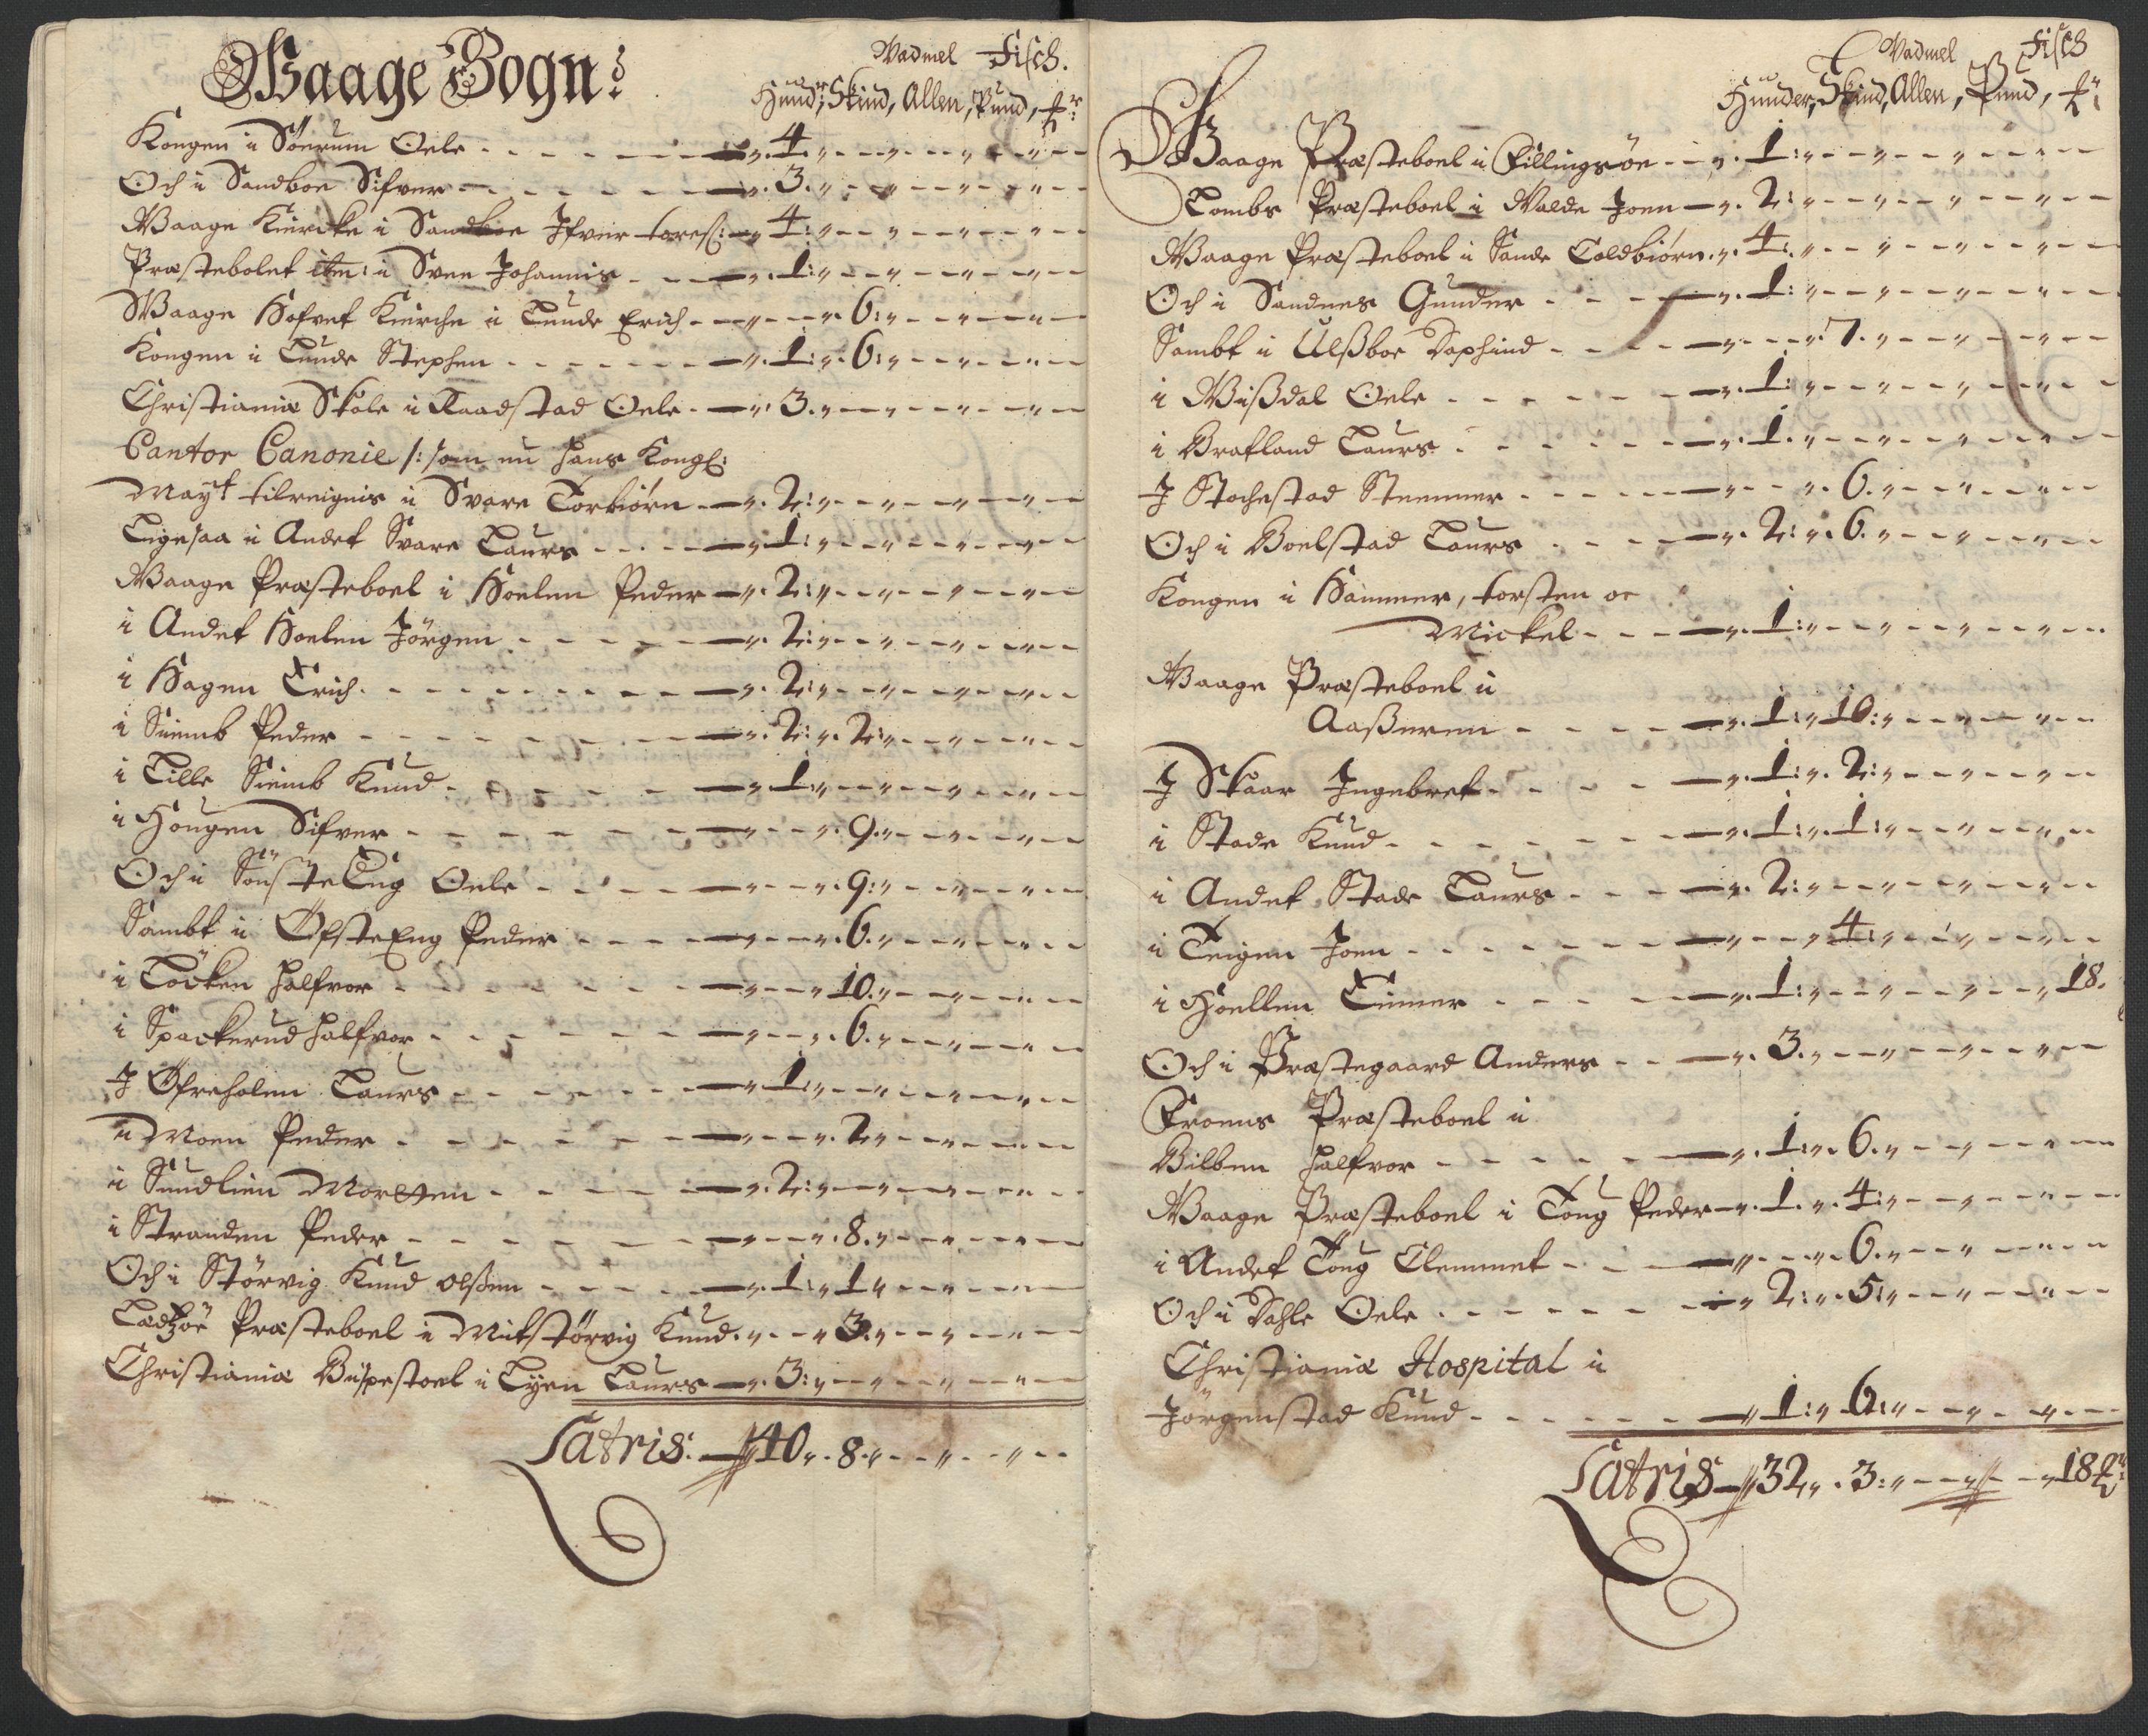 Waage Sogn:
Vadmel Fisch.
Hundr, Skind, Allen, Pund, ℔r:
Kongen i Söerum Oele - - - „ 4 „ - „ - „ - „ -
Och i Sandboe Sifver - - - „ 3 „ - „ - „ - „ -
Waage Kiercke i Sandboe Ifver toreß: - „ 4: „ - „ - „ - „ -
Præstebolet itm: i Sven Johannis - - - „ 1: „ - „ - „ - „ -
Waage Hofvet Kirche i Tunde Erich - - „ - „ 6: „ - „ - „ -
Kongen i Tunde Stephen - - - „ 1: „ 6: „ - „ - „ -
Christianiæ Skole i Raadstad Oele - „ 3 „ - „ - „ - „ -
Cantor Canonie /: som nu hans Kongl:
Mayt tilreignis i Svare Torbiörn - „ 2: „ - „ - „ - „ -
Ligesaa i Andet Svare Laurs - - - „ 1: „ - „ - „ - „ -
Waage Præsteboel i Hoelen Peder - „ 2: „ - „ - „ - „ -
i Andet Hoelen Jörgen - - - „ 2: „ - „ - „ - „ -
i Hagen Erich - - - „ 2: „ - „ - „ - „ -
i Siemb Peder - - - „ 2: „ 2: „ - „ - „ -
i Lille Siemb Knud - - - „ 1: „ - „ - „ - „ -
i Hougen Sifver - - - „ - „ 9 „ - „ - „ -
Och i Sönste Eng Oele - - - „ - „ 9: „ - „ - „ -
Sambt i Öfste Eng Peder - - - „ - „ 6 „ - „ - „ -
i Löcken Halfvor - - - „ - „ 10 „ - „ - „ -
i Spackerud Halfvor - - - „ - „ 6 „ - „ - „ -
I Öfreholen Laurs - - - „ 1: „ - „ - „ - „ -
i Moen Peder - - - „ - „ 2 „ - „ - „ -
i Sundlien Morsten - - - „ 2: „ - „ - „ - „ -
i Stranden Peder - - - „ - „ 8 „ - „ - „ -
Och i Störvig Knud olßen - - - „ 1: „ 1 „ - „ - „ -
Præsteboel i Mitstörvig Knud - „ - „ 3 „ - „ - „ -
Christianiæ Bispestoel i Lyen Laurs - „ 3: „ - „ - „ - „ -
Latris: - 40 „ 8 „ - „ - „ -
Vadmel Fisch
Hunder, Skind, Allen, Pund, ℔r:
Waage Præsteboel i Fillingsöe - „ 1: „ - „ - „ - „ -
Lombs Præsteboel i Valde Joen - „ 2: „ - „ - „ - „ -
Waage Præsteboel i Sande Toldbiörn „ 4: „ - „ - „ - „ -
Och i Sandnes Gunder - - - „ 1: „ - „ - „ - „ -
Sambt i Ulßboe Dophind - - - „ - „ 7 „ - „ - „ -
i Wißdal Oele - - - „ 1: „ - „ - „ - „ -
i Brafland Laurs - - - „ 1 „ - „ - „ - „ -
I Stochestad Steenner - - - „ - „ 6 „ - „ - „ -
Och i Boelstad Laurs - - - „ 2: „ 6 „ - „ - „ -
Kongen i Hammer, torsten oc
Mickel - - - „ 1: „ - „ - „ - „ -
Waage Præsteboel i
Aaßeren - - - „ 1: „ 10: „ - „ - „ -
I Skaar Ingebret - - - „ 1: „ 2: „ - „ - „ -
i Stade Knud - - - „ 1: „ 1: „ - „ - „ -
i Andet Stade Laurs - - - „ 2: „ - „ - „ - „ -
i Teigen Joen - - - „ - „ 4: „ - „ - „ -
i Hoellen Einner - - - „ 1: „ - „ - „ - „ 18.
Och i Præstegaard Anders - - „ 3 „ - „ - „ - „ -
Froens Præsteboel i
Bilben Halfvor - - - „ 1: „ 6 „ - „ - „ -
Waage Præsteboel i Tong Peder - „ 1 „ 4: „ - „ - „ -
i Andet Tong Clemmet - - „ - „ 6 „ - „ - „ -
Och i Dahle Oele - - - „ 2: „ 5: „ - „ - „ -
Christianiæ Hospital i
Jörgenstad Knud - - - „ 1: „ 6: „ - „ - „ -
Latris - 32 „ 3: „ - „ - „ 18 ℔r: